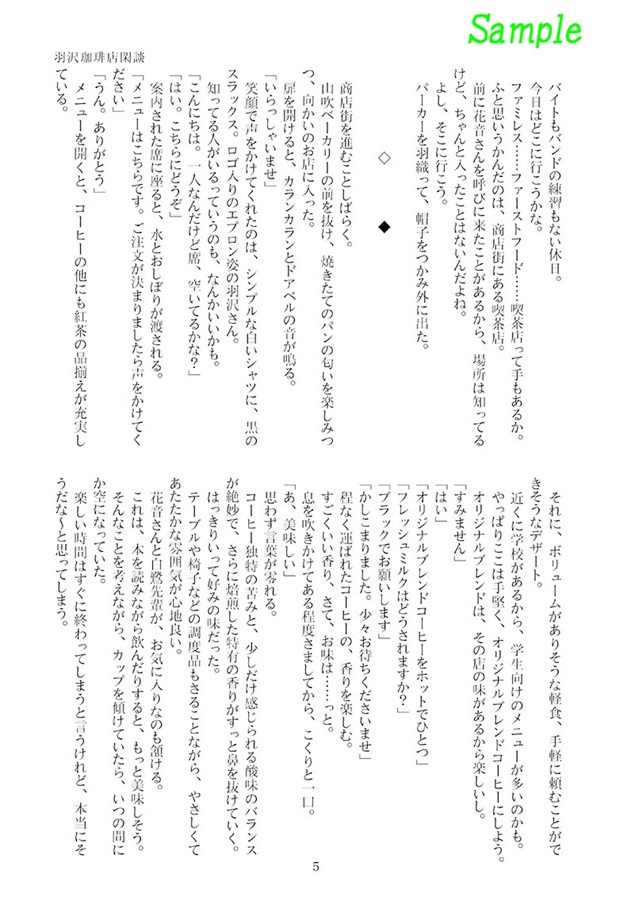 Sample
羽沢珈琲店閑談
バイトもバンドの練習もない休日。
今日はどこに行こうかな。
ファミレス……ファーストフード……喫茶店って手もあるか。
ふと思いうかんだのは、商店街にある喫茶店。
前に花音さんを呼びに来たことがあるから、場所は知ってる
けど、ちゃんと入ったことはないんだよね。
よし、そこに行こう。
パーカーを羽織って、帽子をつかみ外に出た。
◇ ◆
商店街を進むことしばらく。
山吹ベーカリーの前を抜け、焼きたてのパンの匂いを楽しみつ
つ、向かいのお店に入った。
扉を開けると、カランカランとドアベルの音が鳴る。
「いらっしゃいませ」
笑顔で声をかけてくれたのは、シンプルな白いシャツに、黒の
スラックス。ロゴ入りのエプロン姿の羽沢さん。
知ってる人がいるっていうのも、なんかいいかも。
「こんにちは。一人なんだけど席、空いてるかな?」
「はい。こちらにどうぞ」
案内された席に座ると、水とおしぼりが渡される。
「メニューはこちらです。ご注文が決まりましたら声をかけてく
ださい」
「うん。ありがとう」
メニューを開くと、コーヒーの他にも紅茶の品揃えが充実し
ている。
それに、ボリュームがありそうな軽食、手軽に頼むことがで
きそうなデザート。
近くに学校があるから、学生向けのメニューが多いのかも。
やっぱりここは手堅く、オリジナルブレンドコーヒーにしよう。
オリジナルブレンドは、その店の味があるから楽しいし。
「すみません」
「はい」
「オリジナルブレンドコーヒーをホットでひとつ」
「フレッシュミルクはどうされますか?」
「ブラックでお願いします」
「かしこまりました。少々お待ちくださいませ」
程なく運ばれたコーヒーの、香りを楽しむ。
すごくいい香り、さて、お味は……っと。
息を吹きかけてある程度さましてから、こくりと一口。
「あ、美味しい」
思わず言葉が零れる。
コーヒー独特の苦みと、少しだけ感じられる酸味のバランス
が絶妙で、さらに焙煎した特有の香りがすっと鼻を抜けていく。
はっきりいって好みの味だった。
テーブルや椅子などの調度品もさることながら、やさしくて
あたたかな雰囲気が心地良い。
花音さんと白鷺先輩が、お気に入りなのも頷ける。
これは、本を読みながら飲んだりすると、もっと美味しそう。
そんなことを考えながら、カップを傾けていたら、いつの間に
か空になっていた。
楽しい時間はすぐに終わってしまうと言うけれど、本当にそ
うだな～と思ってしまう。
5